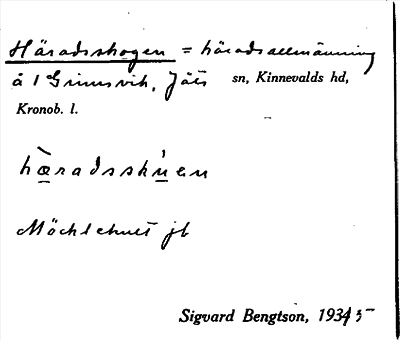 Häradsskogen = häradsallmänning
å 1 Grimsvik, Jäts sn, Kinnevalds hd,
Kronob. l.
hæ̀radsskú̱en
Möcklehult jb
Sigvard Bengtson, 1934/35